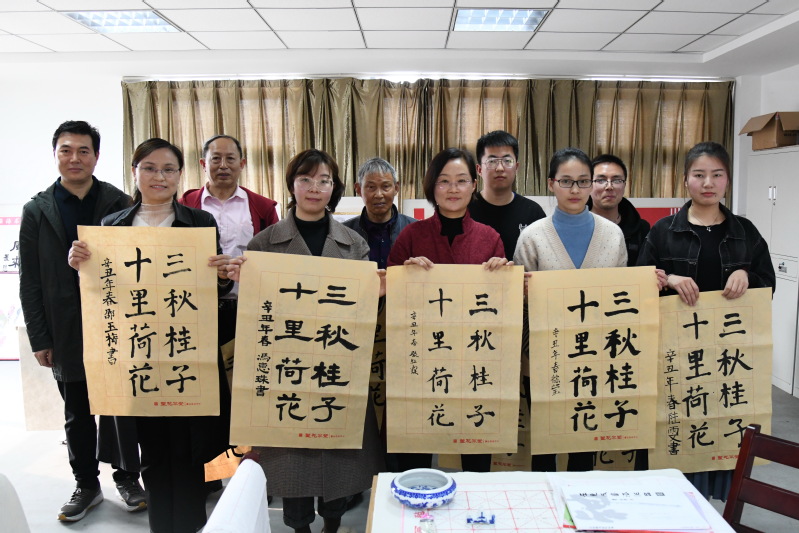 三秋桂子
十里荷花
辛丑年春邵玉梅書
三秋桂子
十里荷花
辛丑年春 冯恩珠書
三秋桂子
十里荷花
辛丑年春
三秋桂子
十里荷花
辛丑年春
三秋桂子
十里荷花
辛丑年 春陆雯書